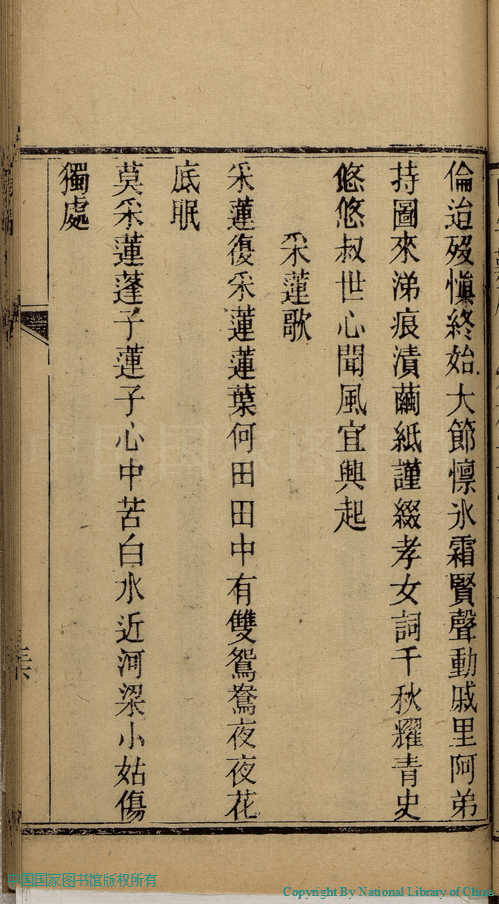 倫迨歿慎終始大節懍氷霜賢聲動戚里阿弟
持圖來涕痕漬繭紙謹綴孝女詞千秋耀青史
悠悠叔世心聞風宜興起
采蓮歌
采蓮復采蓮蓮葉何田田中有雙鴛鴦夜夜花
底眠
莫采蓮蓬子蓮子心中苦白水近河梁小姑傷
獨處
中国国家图书馆版权所有
Copyright By National Library of China